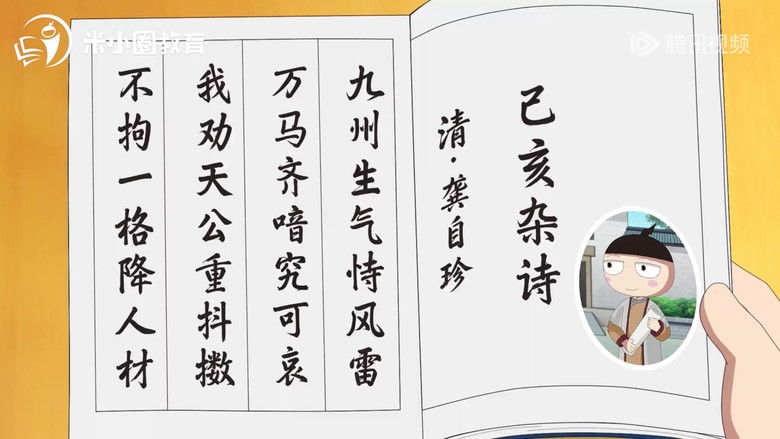 米小圈教育
腾讯视频
己亥杂诗
清·龚自珍
九州生气恃风雷
万马齐喑究可哀
我劝天公重抖擞
不拘一格降人材